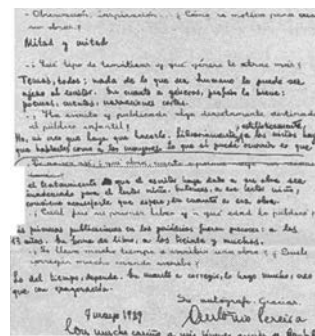 - Observación, inspiración... ¿Cómo se motiva para crear
su obra?
Mitad y mitad
- ¿Qué tipo de temáticas y qué género le atrae más?
Temas, todos: nada de lo que sea humano le puede ser
ajeno al escritor. En cuanto a géneros, prefiero lo breve:
poemas, cuentos, narraciones cortas.
- ¿Ha escrito y publicado algo directamente destinado
al público infantil?
No, ni creo que haya que hacerlo. Literariamente, a los niños hay
que hablarles como a los mayores. Lo que sí puede ocurrir es que
el tratamiento que el escritor haya dado a su obra sea
inadecuado para el lector niño. Entonces, a ese lector niño,
conviene aconsejarle que espere, en cuanto a esa obra.
- ¿Cuál fue su primer libro y a qué edad lo publicó?
Mis primeras publicaciones en los periódicos fueron precoces: a los
13 años. En forma de libro, a los treinta y muchos.
- ¿Le lleva mucho tiempo escribir una obra? ¿Suele
corregir mucho cuando escribe?
Lo del tiempo, depende. En cuanto a corregir, lo hago mucho; creo
que con exageración.
Su autógrafo. Gracias.
9 mayo 1989
Antonio Pereira
Con mucho cariño a mis